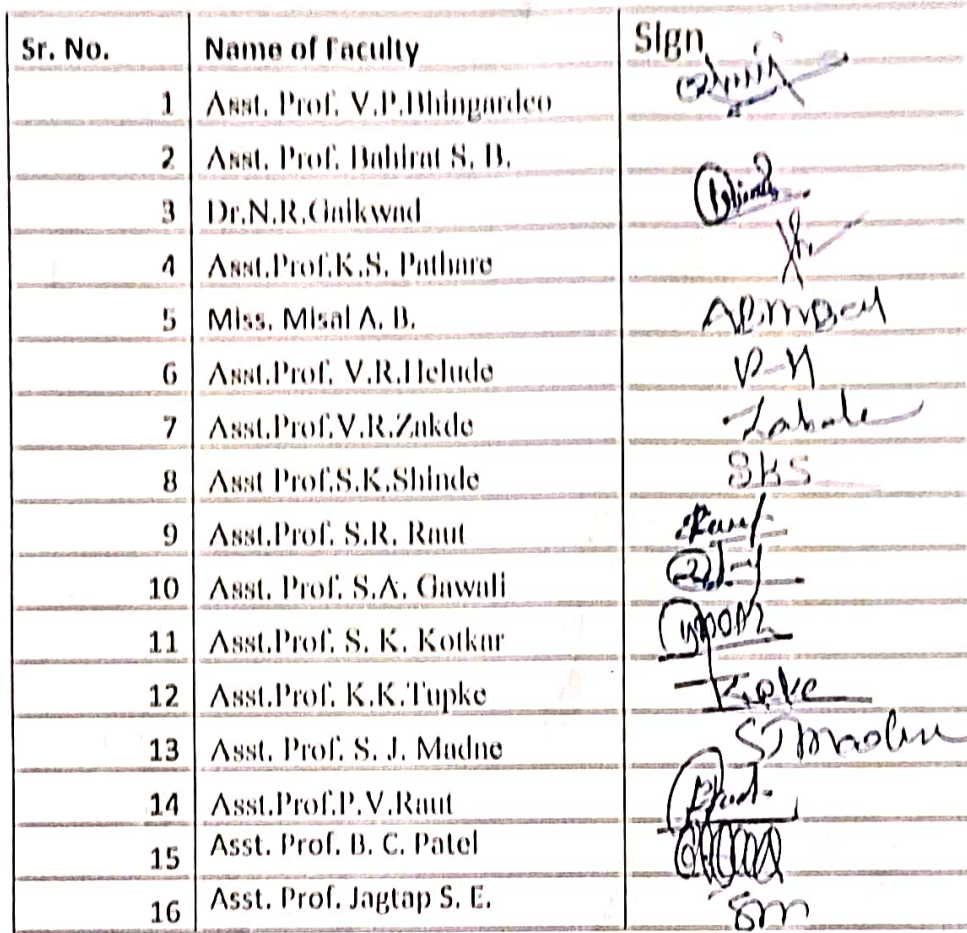 Sr. No. Name of Faculty Sign
1 Asst. Prof. V.P.Bhingardeo
2 Asst. Prof. Bahirat S. B.
3 Dr.N.R.Gaikwad
4 Asst.Prof.K.S. Pathare
5 Miss. Misal A. B.
6 Asst.Prof. V.R.Helude
7 Asst.Prof.V.R.Zakde
8 Asst Prof.S.K.Shinde SKS
9 Asst.Prof. S.R. Raut
10 Asst. Prof. S.A. Gawali
11 Asst.Prof. S. K. Kotkar
12 Asst.Prof. K.K.Tupke
13 Asst. Prof. S. J. Madne
14 Asst.Prof.P.V.Raut
15 Asst. Prof. B. C. Patel
16 Asst. Prof. Jagtap S. E.